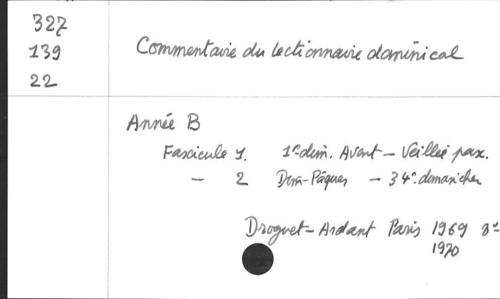 327
139
22
Commentaire du lectionnaire dominical
Année B
Fascicule 1. 1er dim. Avent – Veillée pax.
— 2 Dim-Pâques – 34e dimanche
Droguet-Ardant Paris 1969
1970